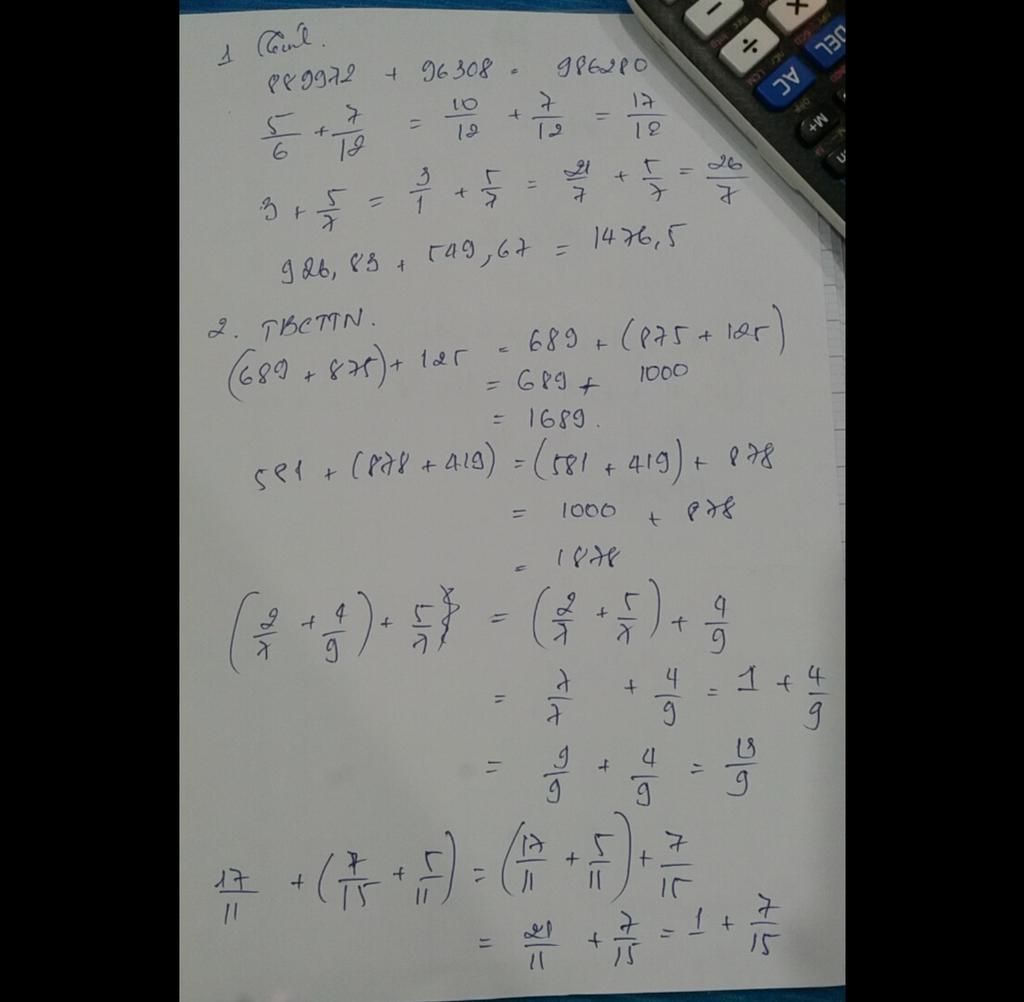 1 Tính.
889972 + 96308 = 986280
5/6 + 7/12 = 10/12 + 7/12 = 17/12
3 + 5/7 = 3/1 + 5/7 = 21/7 + 5/7 = 26/7
926,83 + 549,67 = 1476,5
2. TBCTTN.
(689 + 875) + 125 = 689 + (875 + 125)
= 689 + 1000
= 1689.
581 + (878 + 419) = (581 + 419) + 878
= 1000 + 878
= 1878
(2/7 + 4/9) + 5/7 = (2/7 + 5/7) + 4/9
= 7/7 + 4/9 = 1 + 4/9
= 9/9 + 4/9 = 13/9
17/11 + (7/15 + 5/11) = (17/11 + 5/11) + 7/15
= 21/11 + 7/15 = 1 + 7/15
−
×
÷
DEL
AC
M+
OFF